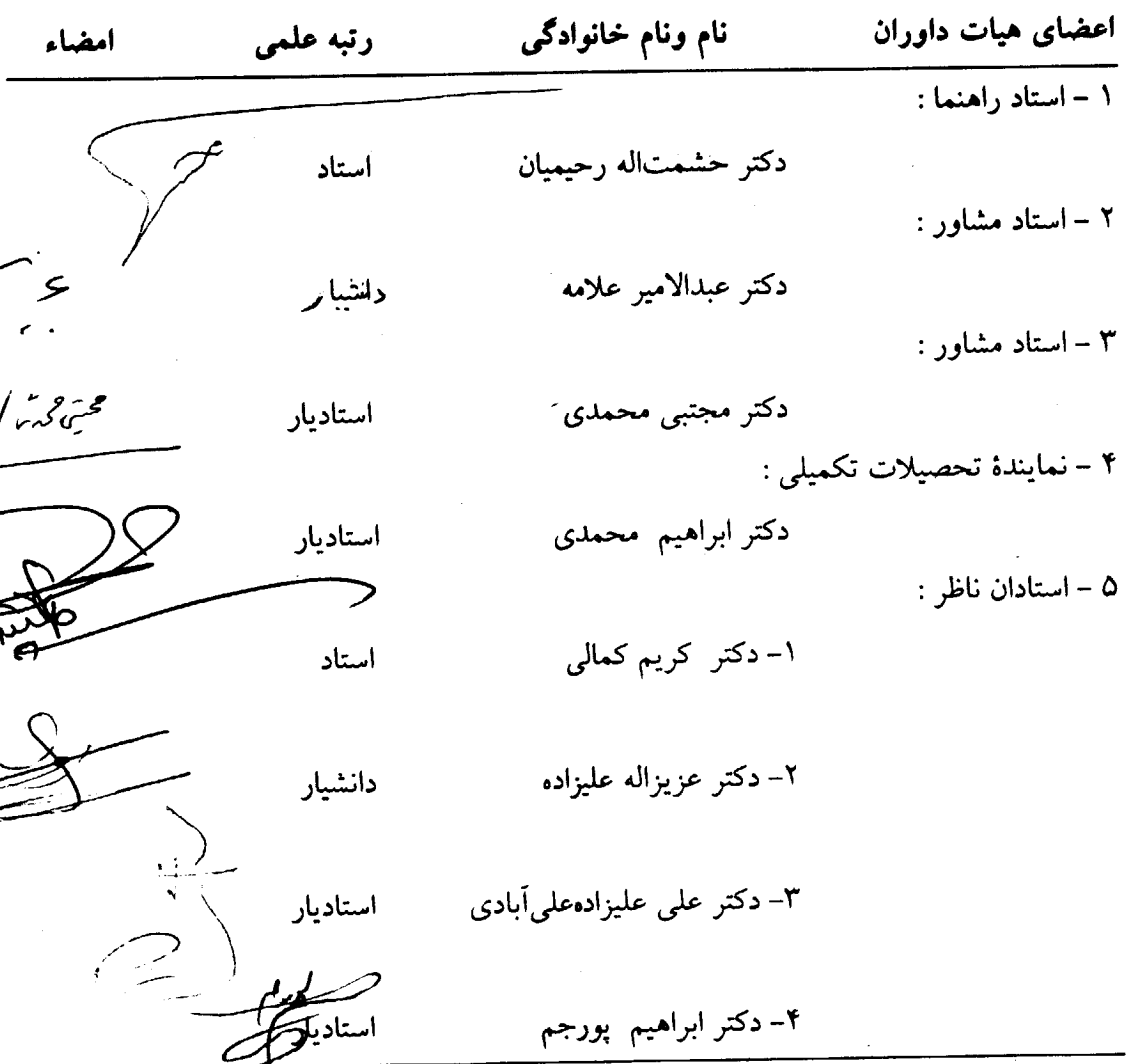 اعضای هیات داوران نام ونام خانوادگی رتبه علمی امضاء
۱ - استاد راهنما :
دکتر حشمت‌اله رحیمیان استاد
۲ - استاد مشاور :
دکتر عبدالامیر علامه دانشیار
۳ - استاد مشاور :
دکتر مجتبی محمدی استادیار
۴ - نمایندهٔ تحصیلات تکمیلی :
دکتر ابراهیم محمدی استادیار
۵ - استادان ناظر :
۱- دکتر کریم کمالی استاد
۲- دکتر عزیزاله علیزاده دانشیار
۳- دکتر علی علیزاده‌علی‌آبادی استادیار
۴- دکتر ابراهیم پورجم استادیار